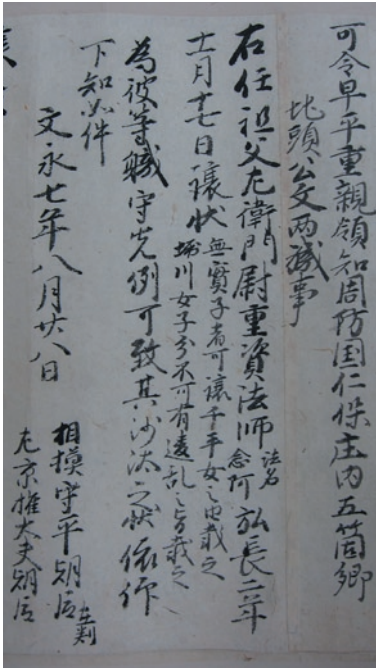 可令早平重親領知周防国仁保庄内五箇郷
地頭公文両職事
右任祖父左衛門尉重資法師法名念阿弘長二年
十一月十七日譲状無實子者可譲千手女之由載之
堀川女子分不可有違乱之旨載之
為彼等職守先例可致其沙汰之状依仰
下知如件
文永七年八月廿八日
相模守平朝臣在判
左京権大夫朝臣